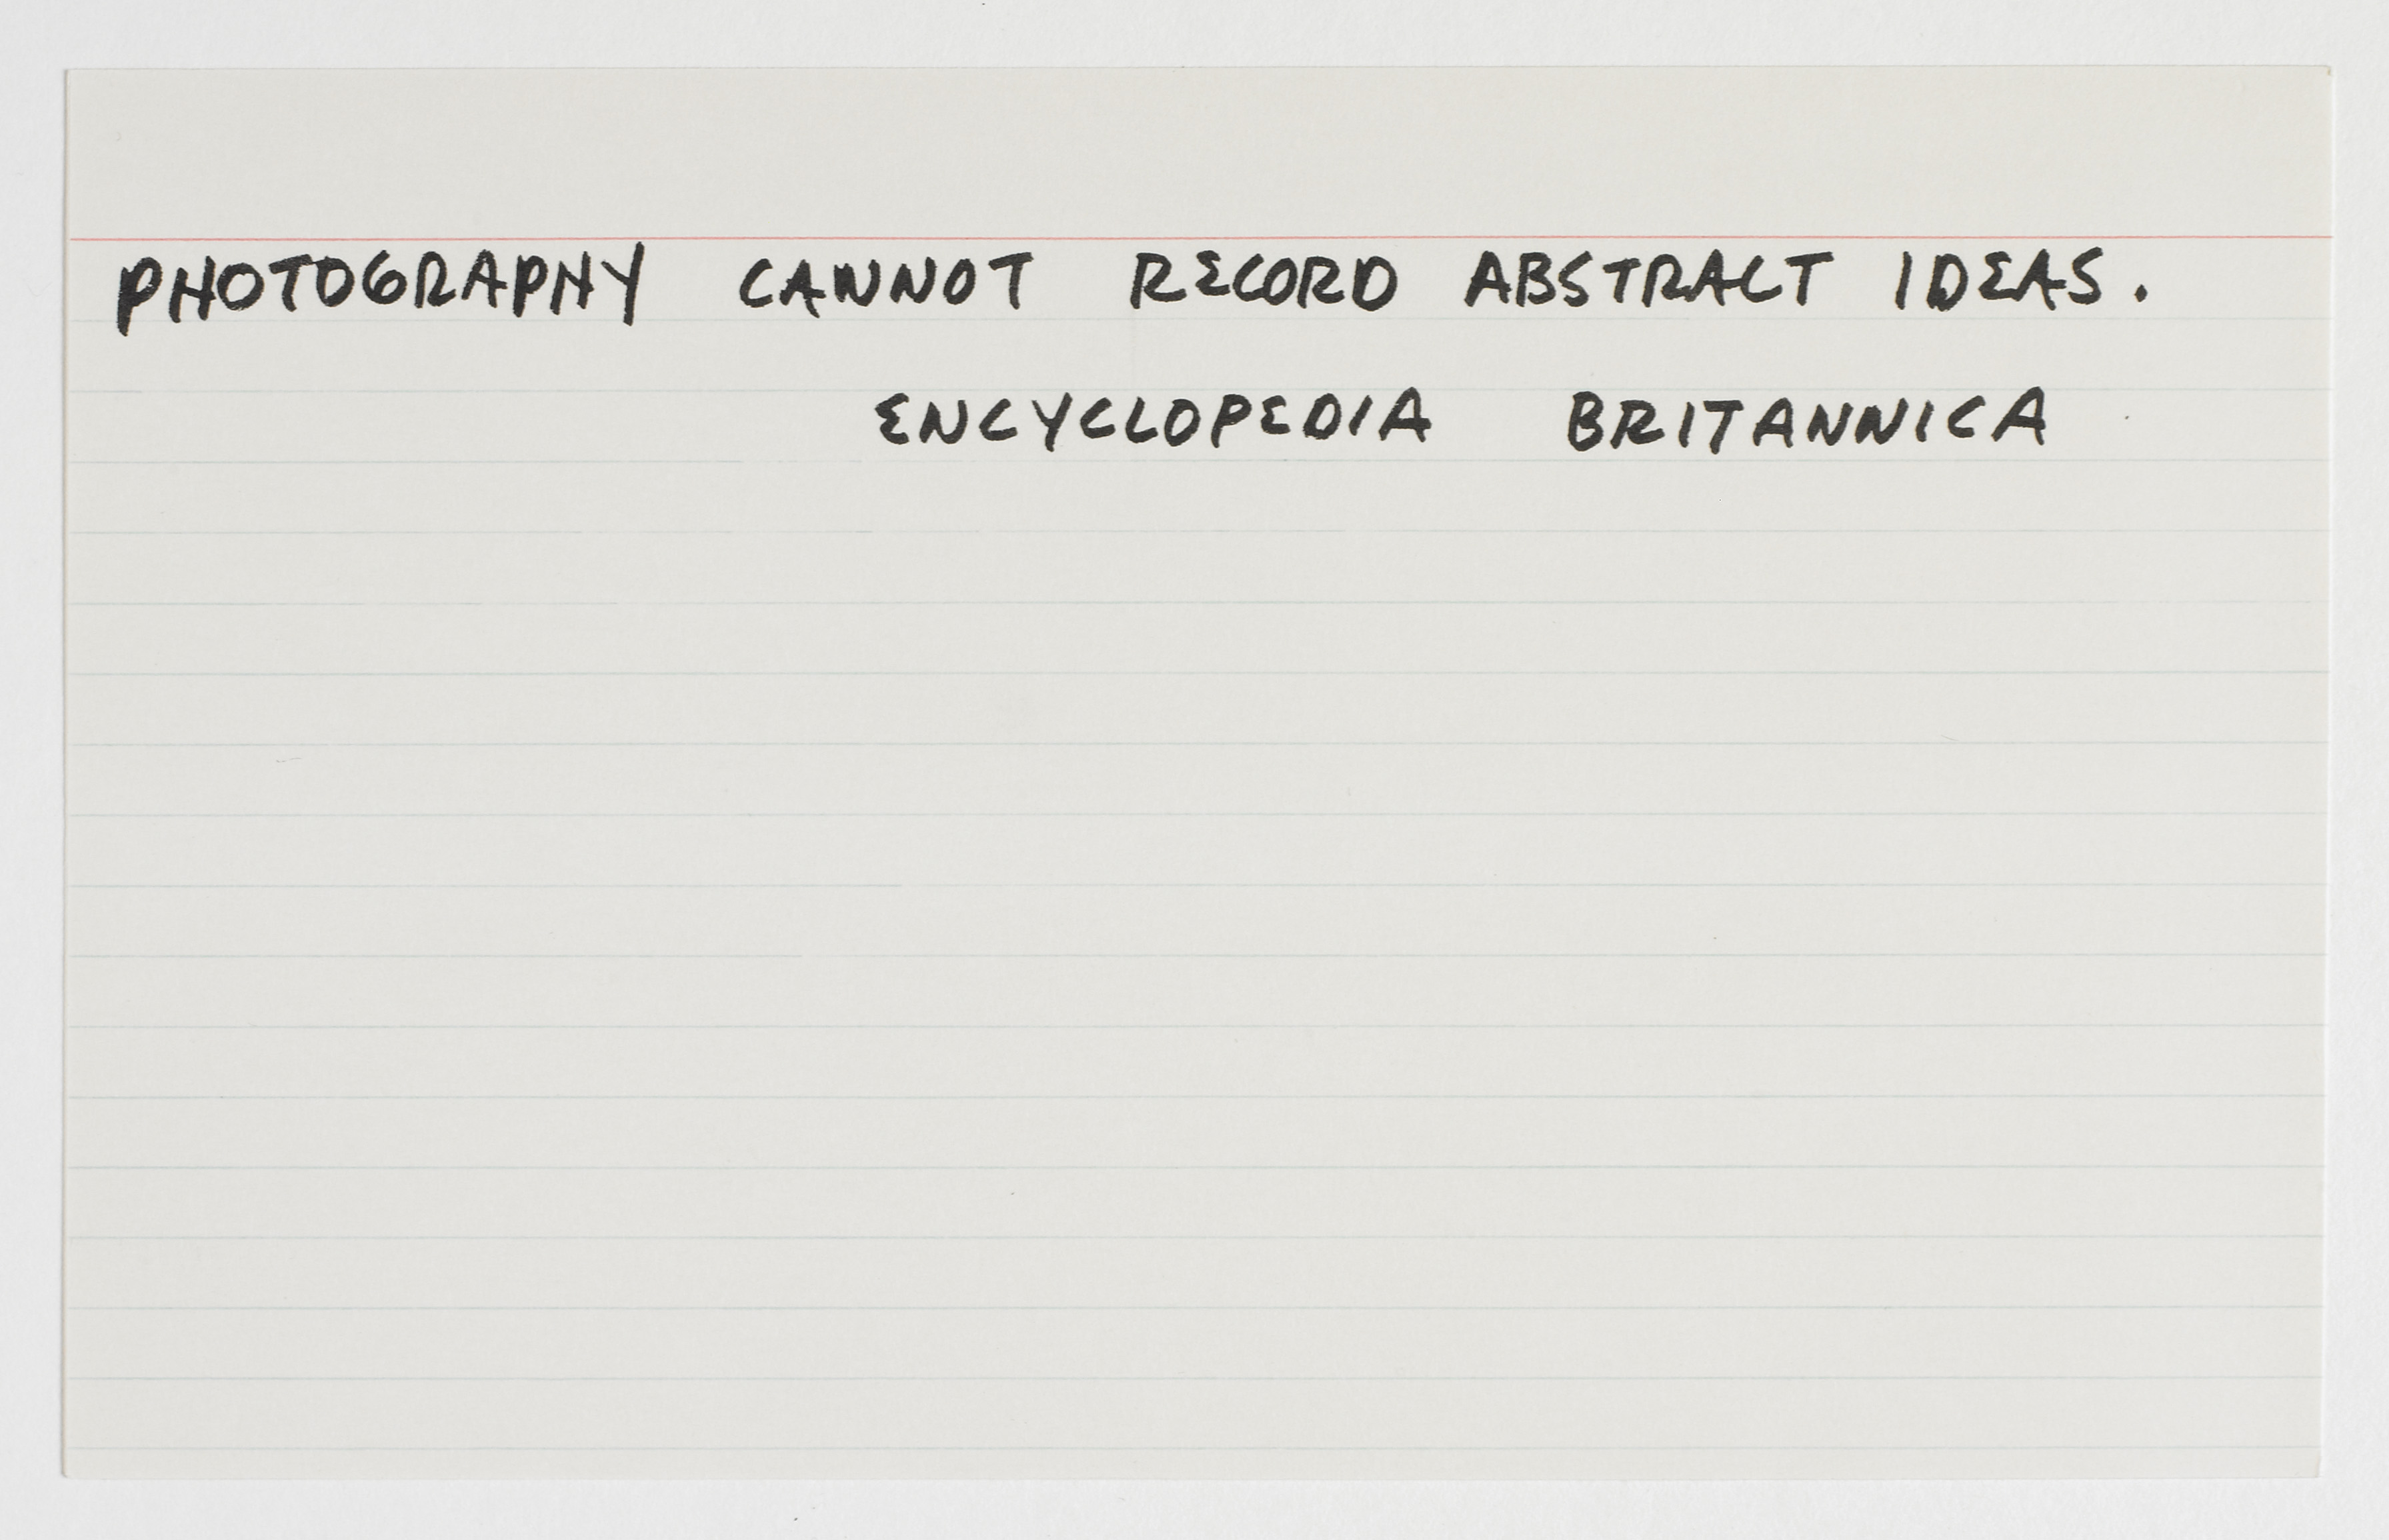 PHOTOGRAPHY CANNOT RECORD ABSTRACT IDEAS.
ENCYCLOPEDIA BRITANNICA